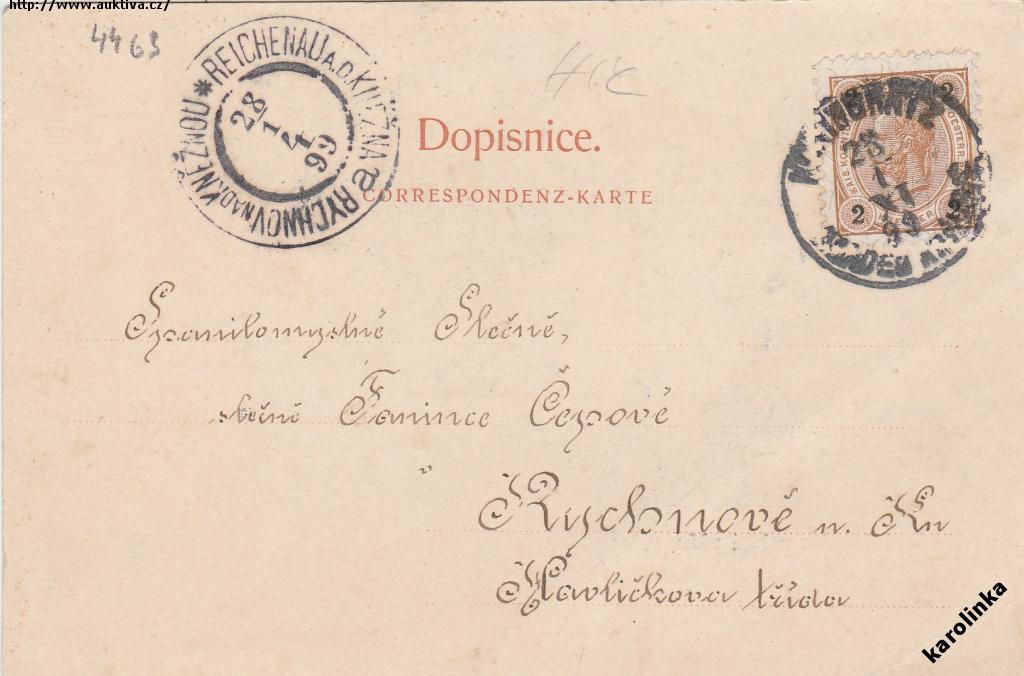 http://www.auktiva.cz/
4463
REICHENAU A.D. KNĚŽNA * RYCHNOV NAD KNĚŽNOU
28
1
4
99
Dopisnice.
CORRESPONDENZ-KARTE
2 2
KAIS. KÖN. OESTERR.
2 2
28
1
XI
99
Spanilomyslné Slečně,
slečně Fanince Čepové
v
Rychnově n. Kn
Havlíčkova třída
karolinka